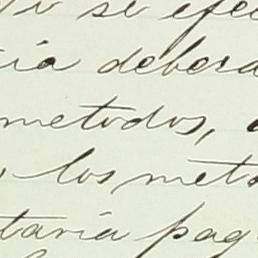 si efec
ria debera
metodos,
los meto
taria pag